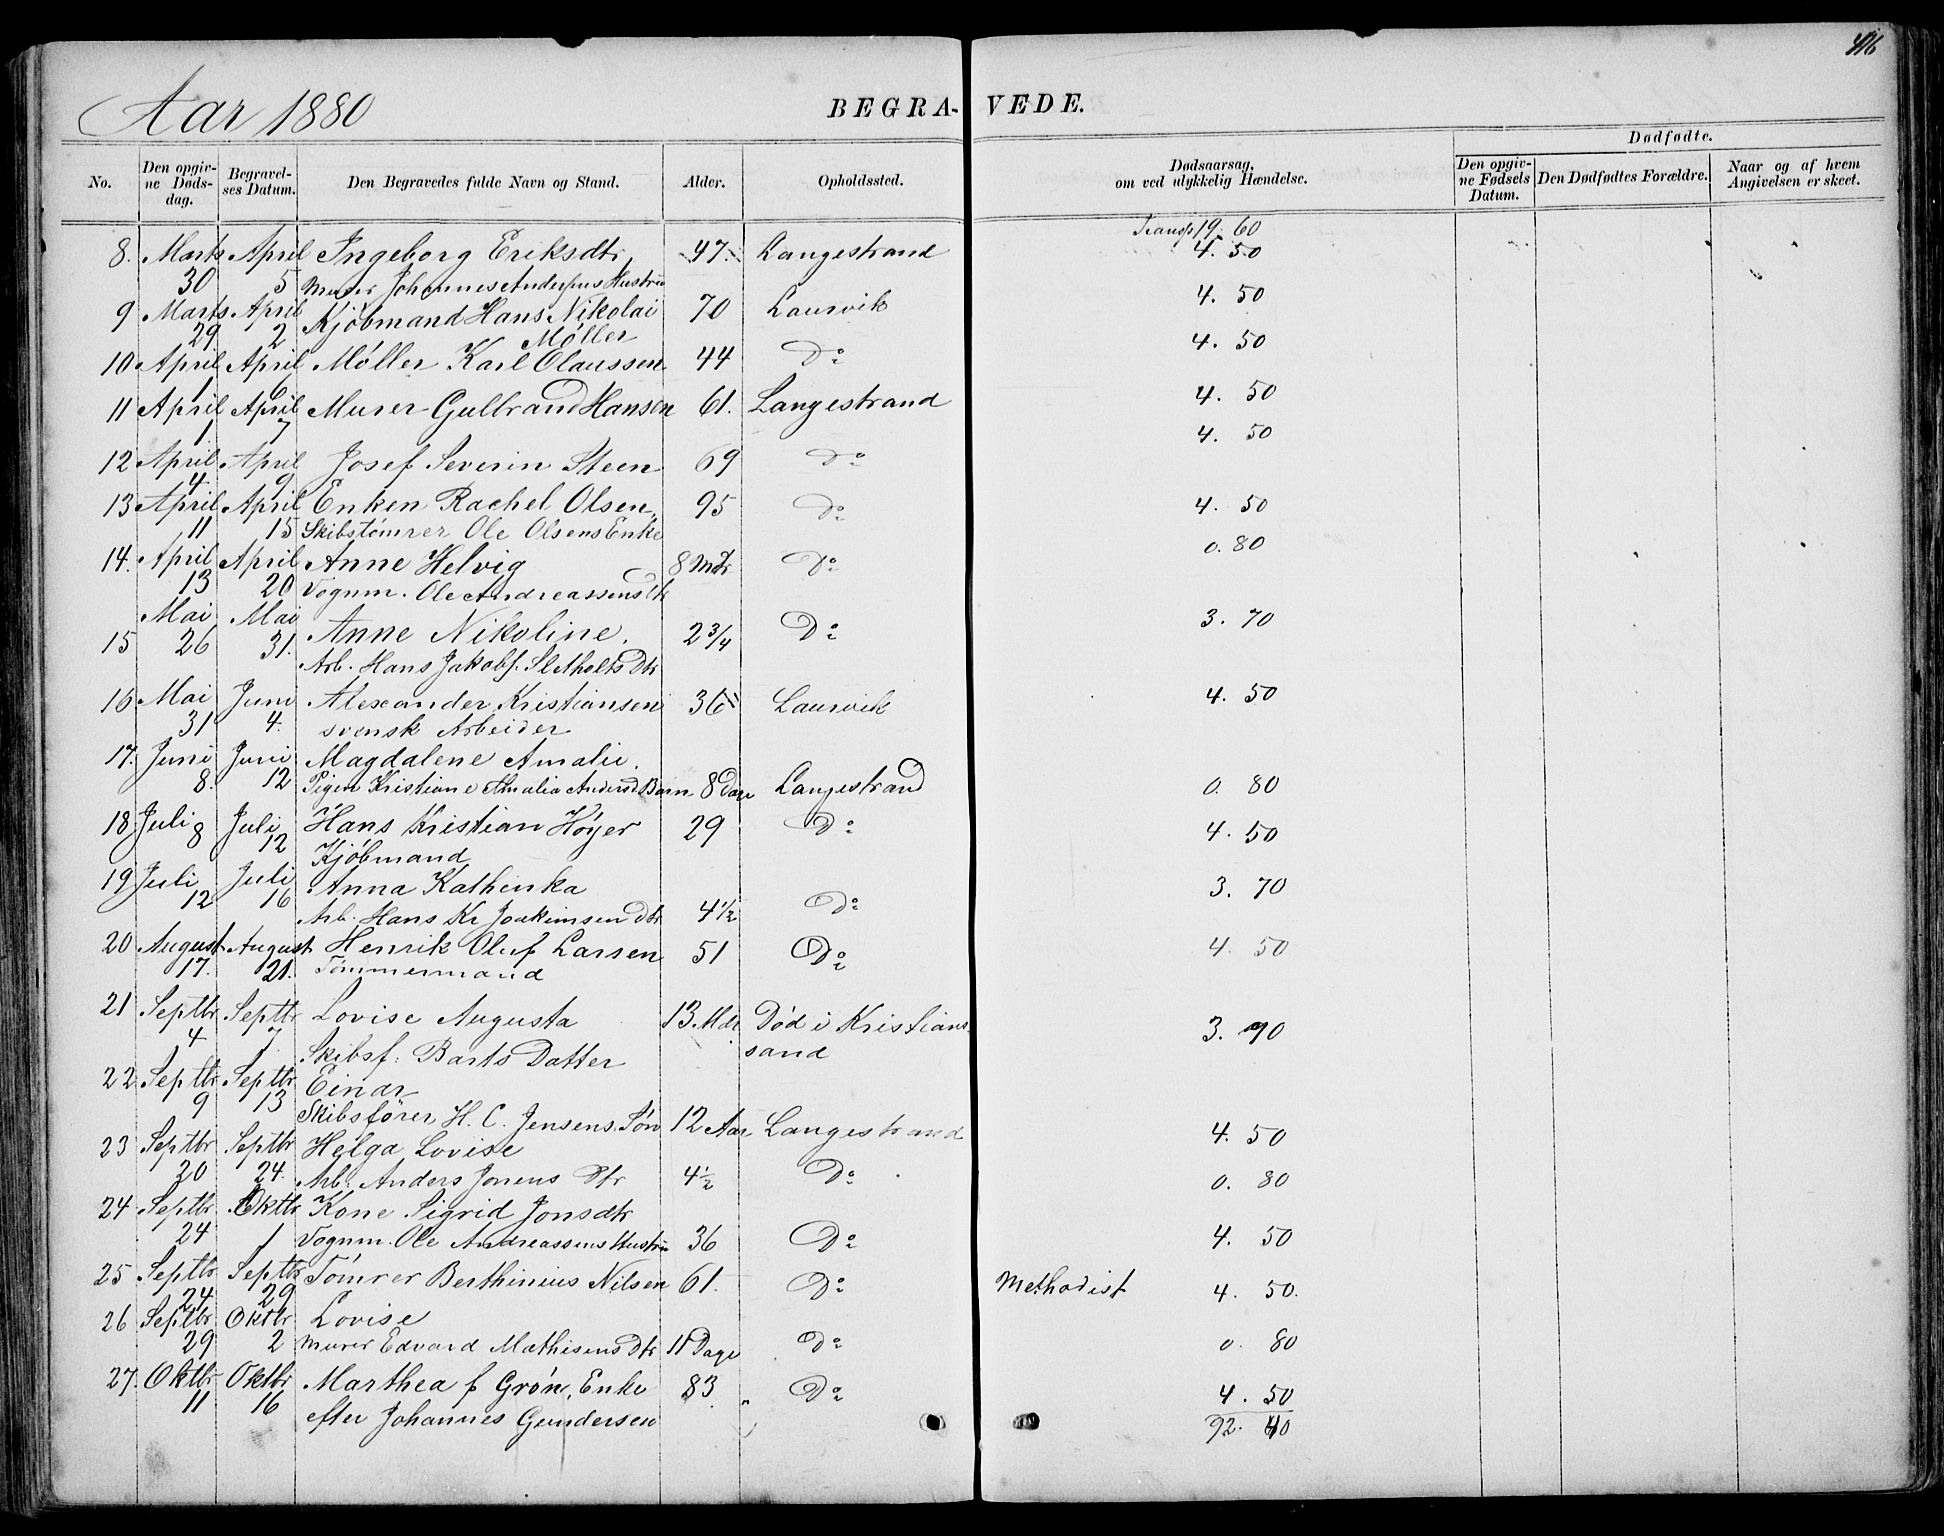 416
Aar 1880
BEGRA- VEDE.
Dødfødte.
No. Den opgiv- Begravel- Den Begravedes fulde Navn og Stand. Alder. Opholdssted. Dødsaarsag, Den opgiv- Den Dødfødtes Forældre. Naar og af hvem
ne Døds- ses Datum. om ved ulykkelig Hændelse. ne Fødsels Angivelsen er skeet.
dag. Datum.
Transp 19. 60
8. Marts April Ingeborg Eriksdtr 47. Langestrand 4. 50
30 5 Murer Johannes Hustru
9 Marts April Kjøbmand Hans Nikolai 70 Laurvik 4. 50
29 2 Møller
10 April April Møller Karl Olaussen 44 Do 4. 50
1 6
11 April April Murer Gulbrand Hansen 61. Langestrand 4. 50
1 7
12 April April Josef Severin Steen 69 Do 4. 50
4 9
13 April April Enken Rachel Olsen, 95 Do 4. 50
11 15 Skibstømrer Ole Olsens Enke
14. April April Anne Helvig 8 Mdr Do 0. 80
13 20 Vognm. Ole Andreassens Dtr
Mai Mai
15 26 31. Anne Nikoline. 2 3/4 Do 3. 70
Arb. Hans Jakobs. Sletholts Dtr
16 Mai Juni Alexander Kristiansen 36 Laurvik 4. 50
31 4. svensk Arbeider
17. Juni Juni Magdalene Amalie.
8. 12 Pigen Kristiane Amalia Andersd Barn 8 Dage Langestrand 0. 80
18 Juli 8 Juli 12 Hans Kristian Høyer 29 Do 4. 50
Kjøbmand
19 Juli Juli Anna Kathenka 3. 70
12 16 Arb. Hans Kr Joakimsen Dtr 4 1/2 Do
20 August August Henrik Oluf Larsen 51 Do 4. 50
17. 21. Tømmermand
21 Septbr Septbr Lovise Augusta 13 Mdr Død i Kristians- 3. 70
4 7 Skibsf. Barts Datter sand
22 Septbr Septbr Einar
9 13 Skibsfører H. C. Jensens Søn 12 Aar Langestrand 4. 50
23 Septbr Septbr Helga Lovise
20 24. Arb. Anders Jonens Dtr 4 1/2 Do 0. 80
24 Septbr Oktbr Kone Sigrid Jonsdtr
24 1 Vognm. Ole Andreassens Hustru 36 Do 4. 50
25 Septbr Septbr Tømrer Berthinius Nilsen 61. Do Methodist 4. 50.
24 29
26 Septbr Oktbr Lovise
29 2 Murer Edvard Mathisens Dtr 11 Dage Do 0. 80
27. Oktbr Oktbr Marthea f Grøn, Enke 83. Do 4. 50
11 16 efter Johannes Gundersen 92. 40